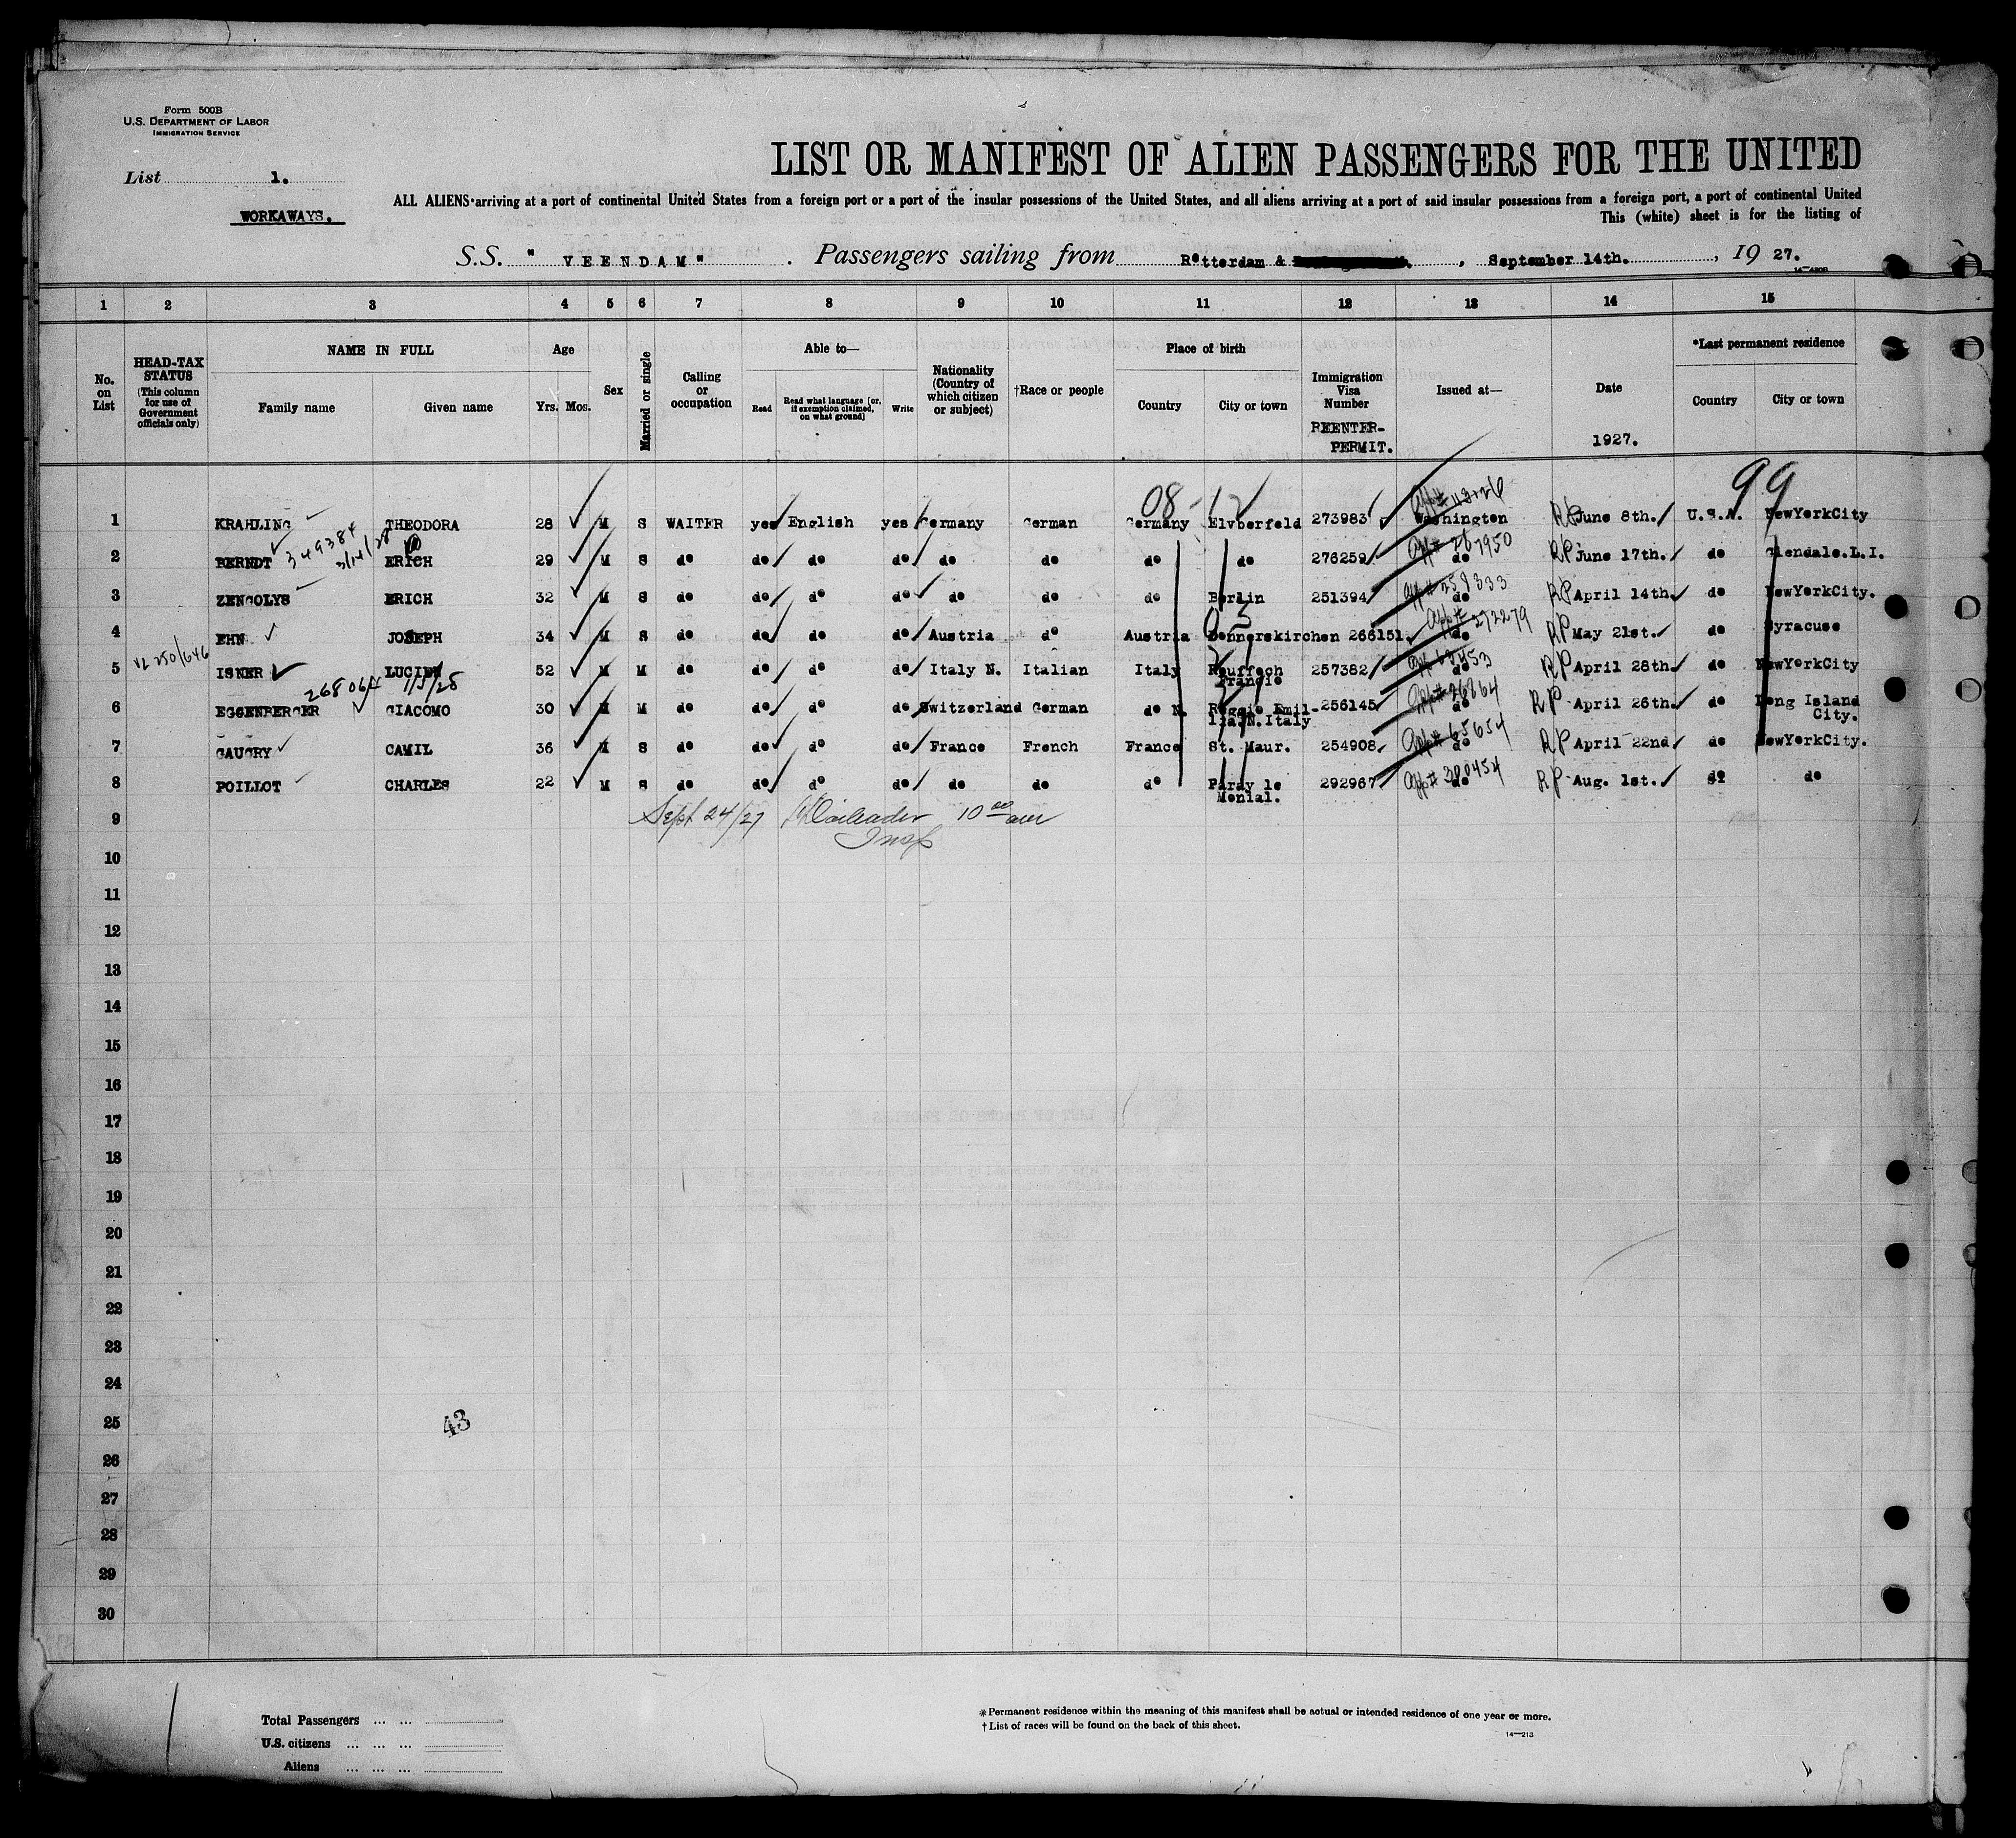 Form 500B
U.S. DEPARTMENT OF LABOR
IMMIGRATION SERVICE
LIST OR MANIFEST OF ALIEN PASSENGERS FOR THE UNITED
List 1.
ALL ALIENS arriving at a port of continental United States from a foreign port or a port of the insular possessions of the United States, and all aliens arriving at a port of said insular possessions from a foreign port, a port of continental United
WORKAWAYS.
This (white) sheet is for the listing of
S.S. " VEENDAM" . Passengers sailing from Rotterdam & , September 14th. , 19 27.
1 2 3 4 5 6 7 8 9 10 11 12 13 14 15
No. on List
HEAD-TAX STATUS (This column for use of Government officials only)
NAME IN FULL
Family name Given name
Age
Yrs. Mos.
Sex
Married or single
Calling or occupation
Able to—
Read Read what language [or, if exemption claimed, on what ground] Write
Nationality (Country of which citizen or subject)
†Race or people
Place of birth
Country City or town
Immigration Visa Number
REENTER-
PERMIT.
Issued at—
Date
1927.
*Last permanent residence
Country City or town
08-12
99
1 KRAHLING THEODORA 28 M S WAITER yes English yes Germany German Germany Elvberfeld 273983 Washington RP June 8th. U.S.A. NewYorkCity
349384 3/14/28
2 BERNDT ERICH 29 M S do do do do do do do do 276259 App# 267950 do RP June 17th. do Glendale.L.I.
3 ZENGOLYS ERICH 32 M S do do do do do do do Berlin 251394 App# 258333 do RP April 14th. do NewYorkCity.
03
4 EHN JOSEPH 34 M S do do do do Austria do Austria Donnerskirchen 266151. App# 272279 do RP May 21st. do Syracuse
5 ISNER LUCIEN 52 M M do do do do Italy N. Italian Italy Rouffach 257382 do RP April 28th. do NewYorkCity
Francie
268064 1/5/28
6 EGGENBERGER GIACOMO 30 M M do do do do Switzerland German do N. Reggio Emil- 256145 App# do RP April 26th. do Long Island
lia.N.Italy City.
7 GAUGRY CAMIL 36 M S do do do do France French France St. Maur. 254908 App# 65654 do RP April 22nd. do NewYorkCity.
8 POILLOT CHARLES 22 M S do do do do do do do Paray le 292967 App# 300454 do RP Aug. 1st. do do
Monial.
9 Sept 24/27 10 00 am
Insp
10
11
12
13
14
15
16
17
18
19
20
21
22
23
24
25 43
26
27
28
29
30
Total Passengers ... ...
U.S. citizens ... ... ...
Aliens ... ... ...
*Permanent residence within the meaning of this manifest shall be actual or intended residence of one year or more.
†List of races will be found on the back of this sheet.
14—213